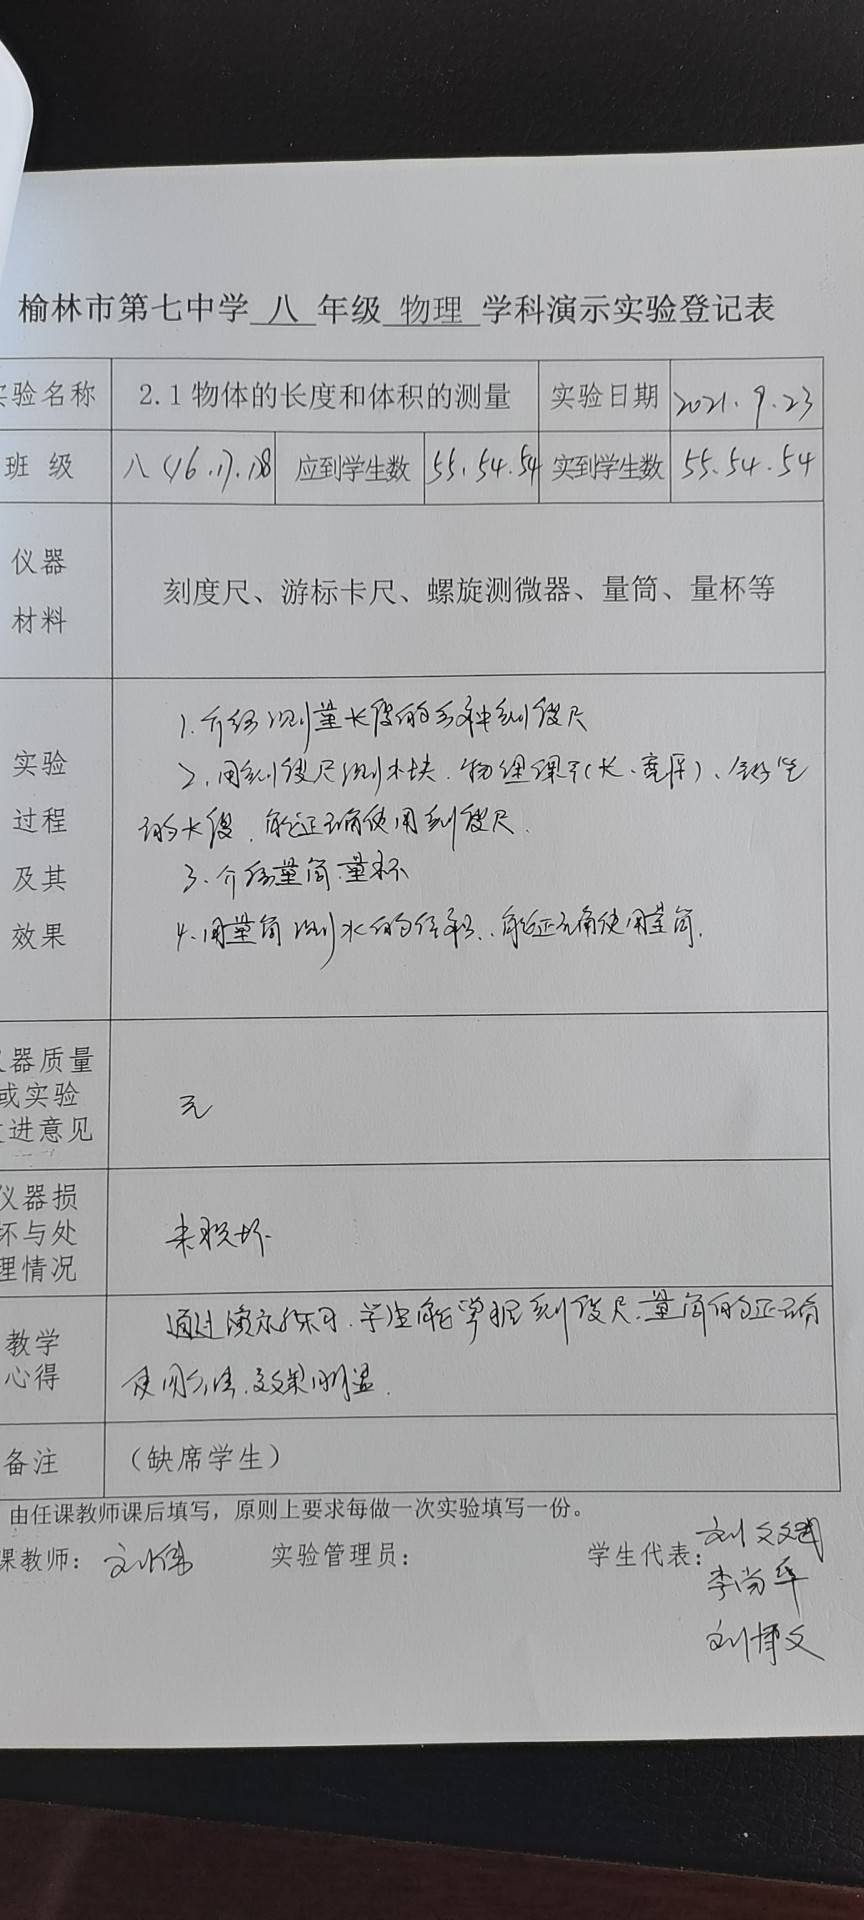 榆林市第七中学 八 年级 物理 学科演示实验登记表
实验名称 2.1 物体的长度和体积的测量 实验日期 2021.9.23
班 级 八(16.17.18 应到学生数 55.54.54 实到学生数 55.54.54
仪器
材料
刻度尺、游标卡尺、螺旋测微器、量筒、量杯等
实验
过程
及其
效果
1.介绍测量长度的各种刻度尺
2.用刻度尺测木块.物理课本(长、宽、厚)、铅笔
的长度.能正确使用刻度尺.
3.介绍量筒.量杯
4.用量筒测水的体积.能正确使用量筒.
仪器质量
或实验
改进意见
无
仪器损
坏与处
理情况
未损坏.
教学
心得
通过演示练习.学生能掌握刻度尺.量筒的正确
使用方法.效果明显.
备注 （缺席学生）
由任课教师课后填写，原则上要求每做一次实验填写一份。
课教师：刘伟 实验管理员： 学生代表：刘文斌
李尚华
刘博文